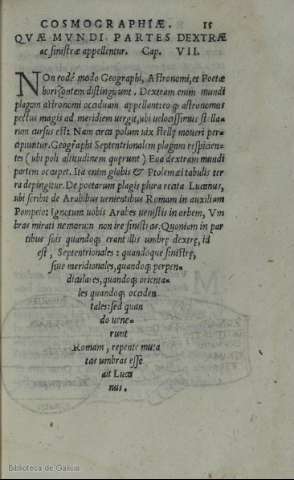 COSMOGRAPHIÆ. 15
QVÆ MVNDI PARTES DEXTRÆ
ac sinistræ appellentur. Cap. VII.
NOn eodē modo Geographi, Astronomi, et Poetæ
horizontem distinguunt. Dextram enim mundi
plagam astronomi occiduam appellant: eo q; astronomus
pectus magis ad meridiem uergit, ubi uelocissimus stella
rum cursus est: Nam circa polum uix stellę moueri per=
cipiuntur. Geographi Septentrionalem plagam respicien=
tes (ubi poli altitudinem quęrunt) Eoa dextram mundi
partem occupet. Ita enim globis & Ptolemæi tabulis ter
ra depingitur. De poetarum plagis plura recitat Lucanus,
ubi scribit de Arabibus uenientibus Romam in auxilium
Pompeio: Ignotum uobis Arabes uenistis in orbem, Vm
bras mirati nemorum non ire sinistras. Quoniam in par
tibus suis quandoq; erant illis umbrę dextrę, id
est, Septentrionales: quandoque sinistrę,
siue meridionales, quandoq; perpen=
diculares, quandoq; orienta=
les quandoq; occiden
tales: sed quan
do uene=
runt
Romam, repente muta
tas umbras esse
ait Luca
nus.
Biblioteca de Galicia